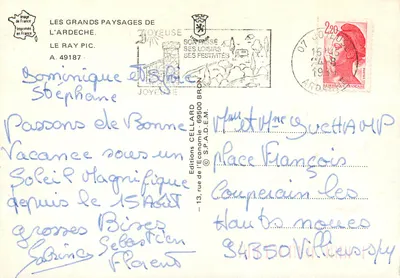 LES GRANDS PAYSAGES DE
L'ARDECHE.
LE RAY PIC.
A. 49187
JOYEUSE
SON PASSE
SES LOISIRS
SES FESTIVITES
JOYEUSE
07 JOYEUSE
15
ARDECHE
2,20
Dominique et Sylvie
Stéphane
Passons de Bonne
Vacance sous un
Soleil Magnifique
depuis le 15 Août
grosses Bises
Sabrina Sébastien
Florent
Editions CELLARD
- 13, rue de l'Economie - 69500 BRON
© S.P.A.D.E.M.
Mr et Mme DUCHAMP
place François
Couperain les
Hauts noues
94350 Villiers s/M